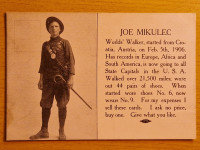 JOE MIKULEC
Worlds' Walker, started from Cro-
atia, Austria, on Feb. 5th, 1906.
Has records in Europe, Africa and
South America, is now going to all
State Capitals in the U. S. A.
Walked over 21,500 miles, wore
out 44 pair of shoes. When
started wore shoes No. 6, now
wears No. 9. For my expenses I
sell these cards. I ask no price,
buy one. Give what you like.